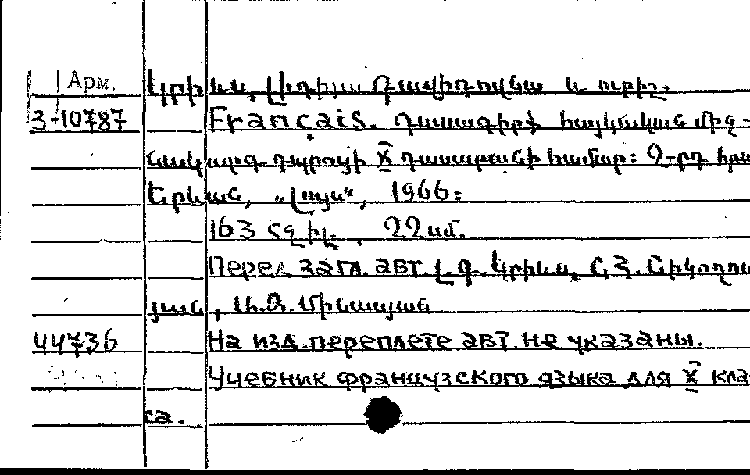 Арм. Կրինս, Լիդիա Դավիդովնա և ուրիշ.
3-10787 Français. Դասագիրք հայկական միջ-
նակարգ դպրոցի X դասարանի համար: 2-րդ հրա
Երևան, „Լույս“, 1966:
163 էջ իլ., 22 սմ.
Перед загл. авт. Լ. Դ. Կրինս, Հ.
յան, Ա. Օ. Մինասյան
44736 На изд. переплете авт. не указаны.
Учебник французского языка для X кла
са.